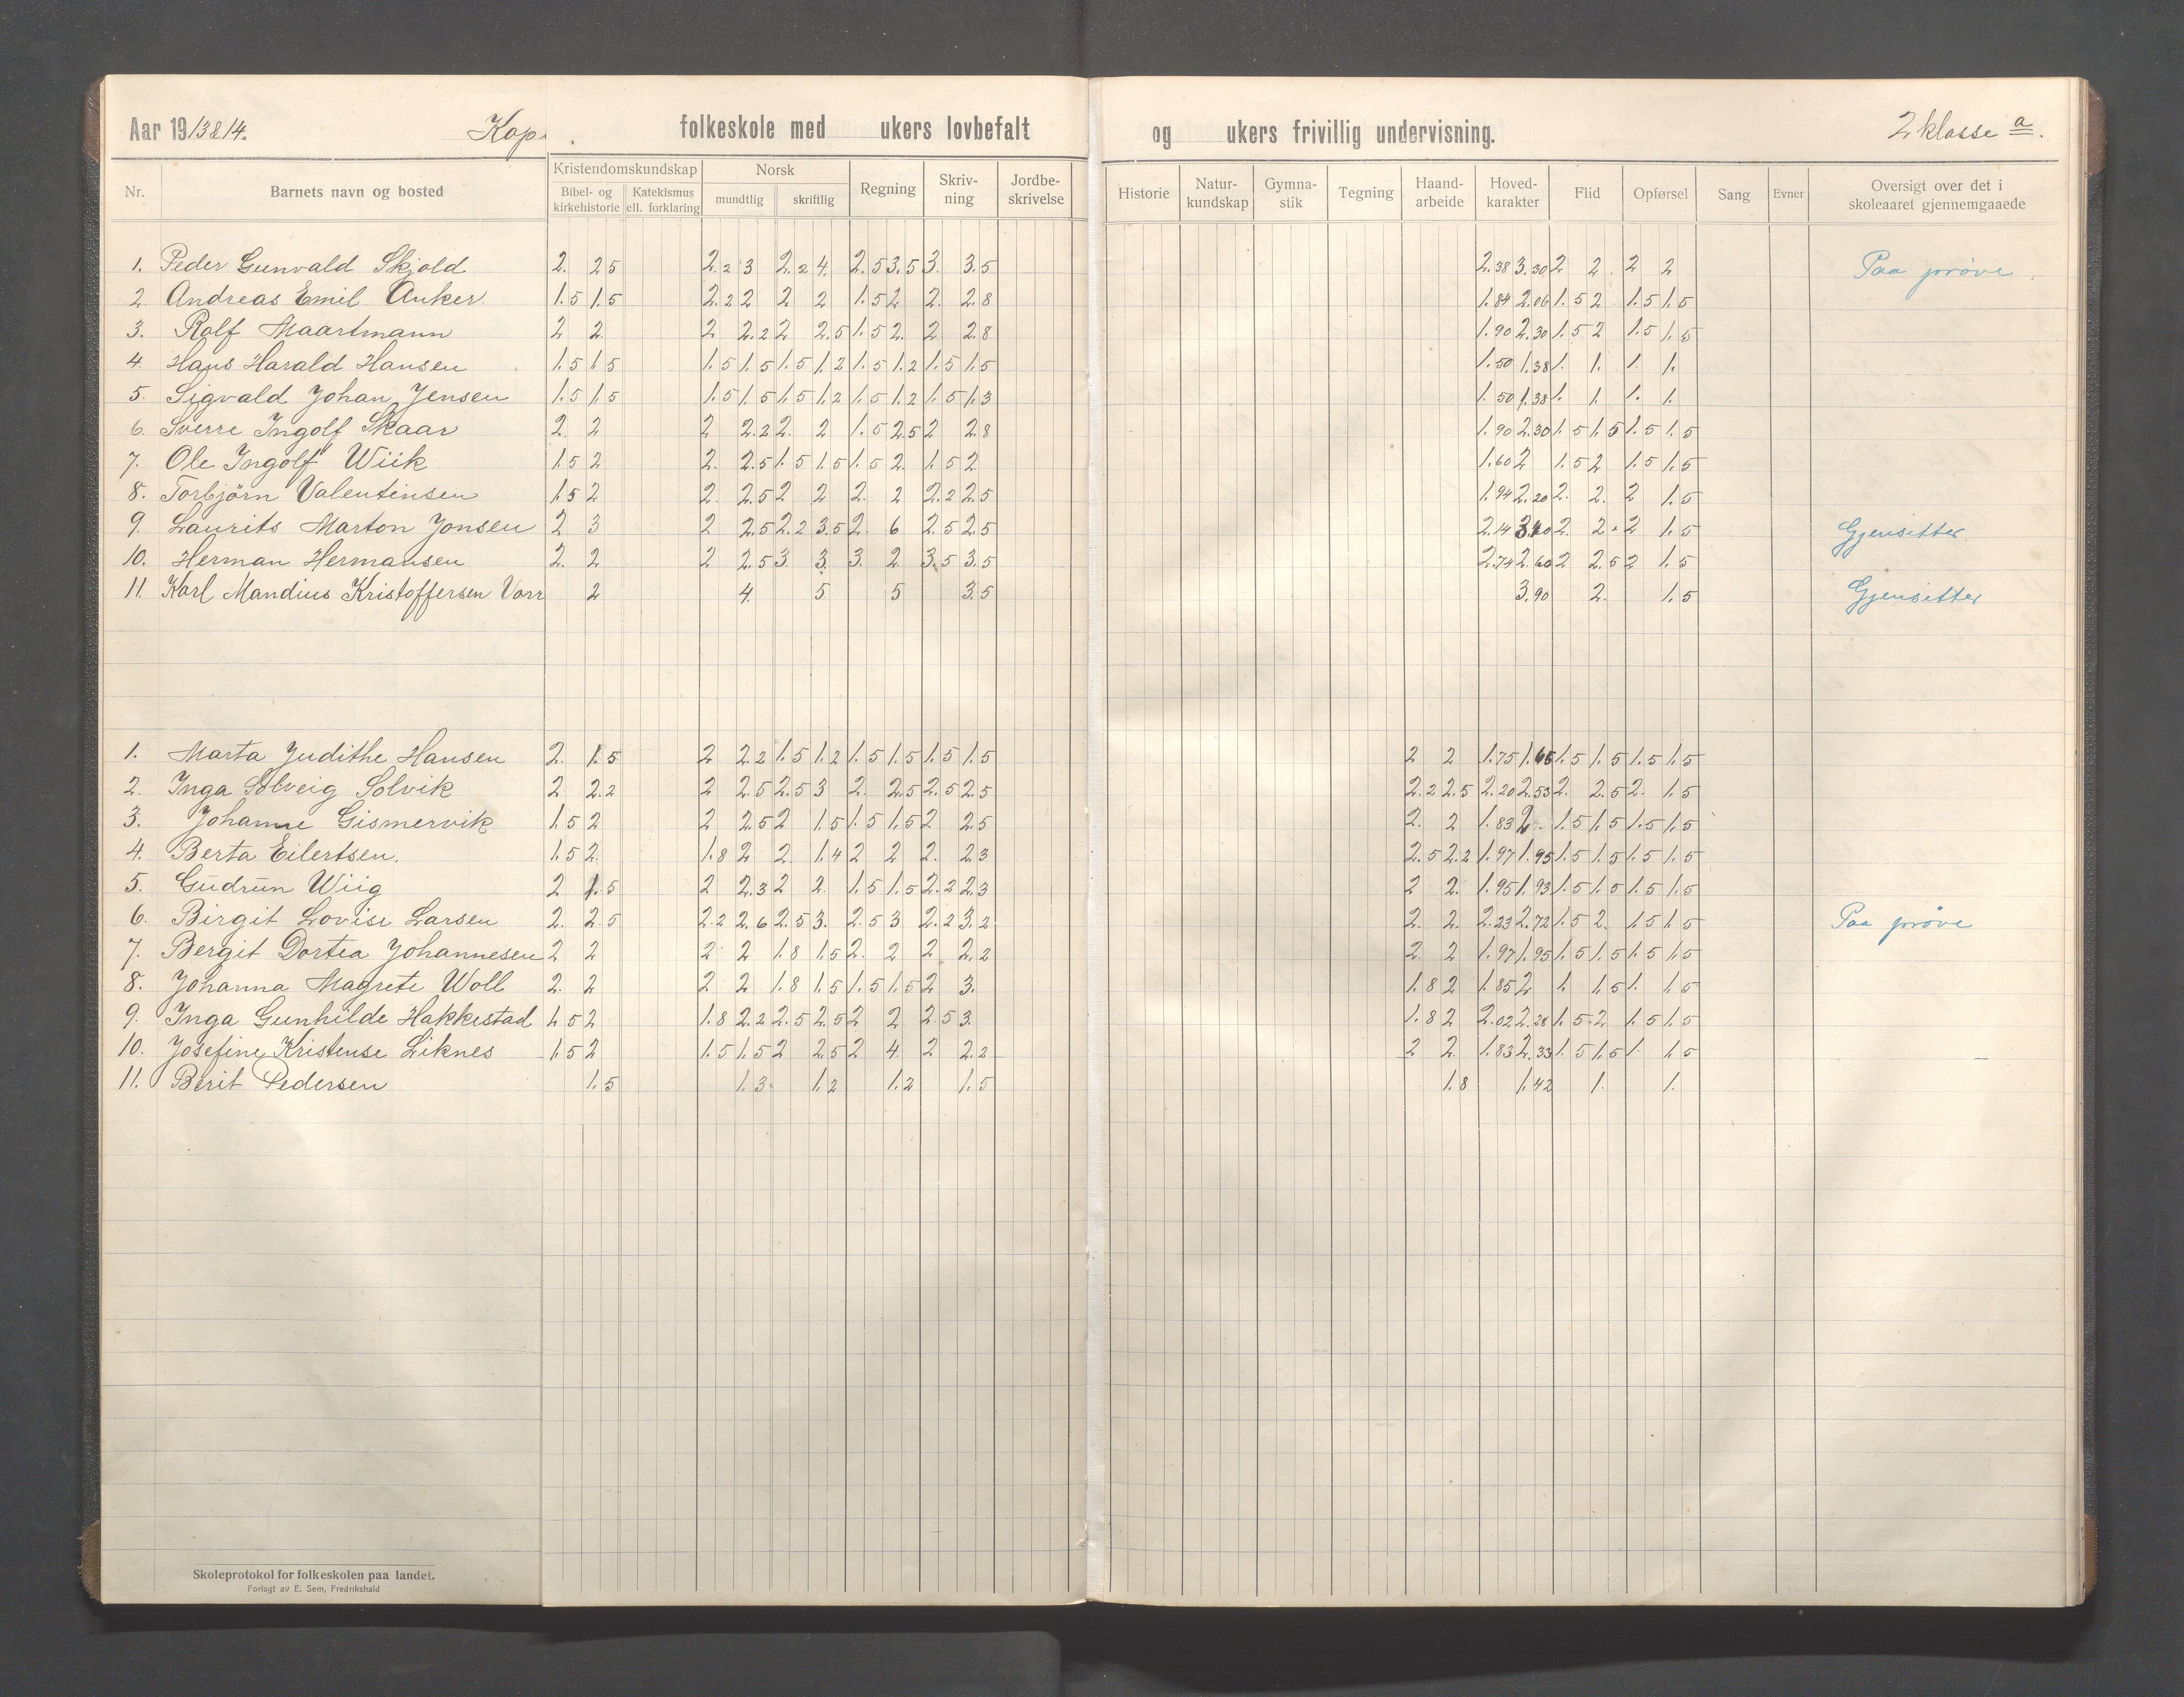 Aar 1913 & 14. Kop. folkeskole med ukers lovbefalt og ukers frivillig undervisning. 2 klasse a.
Nr. Barnets navn og bosted Kristendomskundskap Bibel- og kirkehistorie Katekismus ell. forklaring Norsk mundtlig skriftlig Regning Skriv-ning Jordbe-skrivelse Historie Natur-kundskap Gymna-stik Tegning Haand-arbeide Hoved-karakter Flid Opførsel Sang Evner Oversigt over det i skoleaaret gjennemgaaede
1. Peder Gunvald Skjold 2. 2 5 2.2 3 2.2 4. 2.5 3.5 3. 3.5 2.38 3.30 2 2. 2 2 Paa prøve.
2. Andreas Emil Anker 1.5 1.5 2.2 2 2 2 1.5 2 2. 2.8 1.84 2.06 1.5 2. 1.5 1.5
3. Rolf Maartmann 2 2. 2 2.2 2 2.5 1.5 2. 2 2.8 1.90 2.30 1.5 2 1.5 1.5
4. Hans Harald Hansen 1.5 1.5 1.5 1.5 1.5 1.2 1.5 1.2 1.5 1.5 1.50 1.38 1. 1. 1. 1.
5. Sigvald Johan Jensen 1.5 1.5 1.5 1.5 1.5 1.2 1.5 1.2 1.5 1.3 1.50 1.38 1. 1. 1. 1.
6. Sverre Ingolf Skaar 2. 2 2 2.2 2. 2 1.5 2.5 2 2.8 1.90 2.30 1.5 1.5 1.5 1.5
7. Ole Ingolf Wiik 1.5 2 2. 2.5 1.5 1.5 1.5 2. 1.5 2 1.60 2 1.5 2 1.5 1.5
8. Torbjörn Valentinsen 1.5 2 2. 2.5 2 2 2. 2 2.2 2.5 1.94 2.20 2. 2. 2 1.5
9. Laurits Marton Jonsen 2 3 2 2.5 2.2 3.5 2. 6 2.5 2.5 2.14 2. 2. 2 1.5 Gjensitter
10. Herman Hermansen 2. 2 2 2.5 3. 3. 3. 2 3.5 3.5 2.74 2.60 2 2.5 2 1.5
11. Karl Mandius Kristoffersen Vorr 2 4. 5 5 3.5 3.90 2. 1.5 Gjensitter
1. Marta Judithe Hansen 2. 1.5 2 2.2 1.5 1.2 1.5 1.5 1.5 1.5 2 2 1.75 1.65 1.5 1.5 1.5 1.5
2. Inga Solveig Solvik 2 2.2 2 2.5 2.5 3 2. 2.5 2.5 2.5 2.2 2.5 2.20 2.53 2. 2.5 2. 1.5
3. Johanne Gismervik 1.5 2 2 2.5 2 1.5 1.5 1.5 2 2.5 2. 2 1.83 2 1.5 1.5 1.5 1.5
4. Berta Eilertsen. 1.5 2. 1.8 2 2. 1.4 2 2 2. 2.3 2.5 2.2 1.97 1.95 1.5 1.5 1.5 1.5
5. Gudrun Wiig 2 1.5 2 2.3 2 2. 1.5 1.5 2.2 2.3 2 2. 1.95 1.93 1.5 1.5 1.5 1.5
6. Birgit Lovise Larsen 2. 2.5 2.2 2.6 2.5 3. 2.5 3 2.2 3.2 2. 2. 2.23 2.72 1.5 2. 1.5 1.5 Paa prøve
7. Bergit Dortea Johannesen 2 2 2 2 1.8 1.5 2. 2 2 2.2 2 2 1.97 1.95 1.5 1.5 1.5 1.5
8. Johanna Magrete Woll 2. 2 2 2 1.8 1.5 1.5 1.5 2 3. 1.8 2 1.85 2 1. 1.5 1. 1.5
9. Inga Gunhilde Hakkestad 1.5 2 1.8 2.2 2.5 2.5 2 2 2.5 3. 1.8 2 2.02 2.28 1.5 2 1.5 1.5
10. Josefine Kristense Liknes 1.5 2 1.5 1.5 2 2.5 2 4. 2 2.2 2 2. 1.83 2.33 1.5 1.5 1. 1.5
11. Berit Pedersen 1.5 1.3 1.2 1.2 1.5 1.8 1.42 1. 1.
Skoleprotokol for folkeskolen paa landet.
Forlagt av E. Sem, Fredrikshald